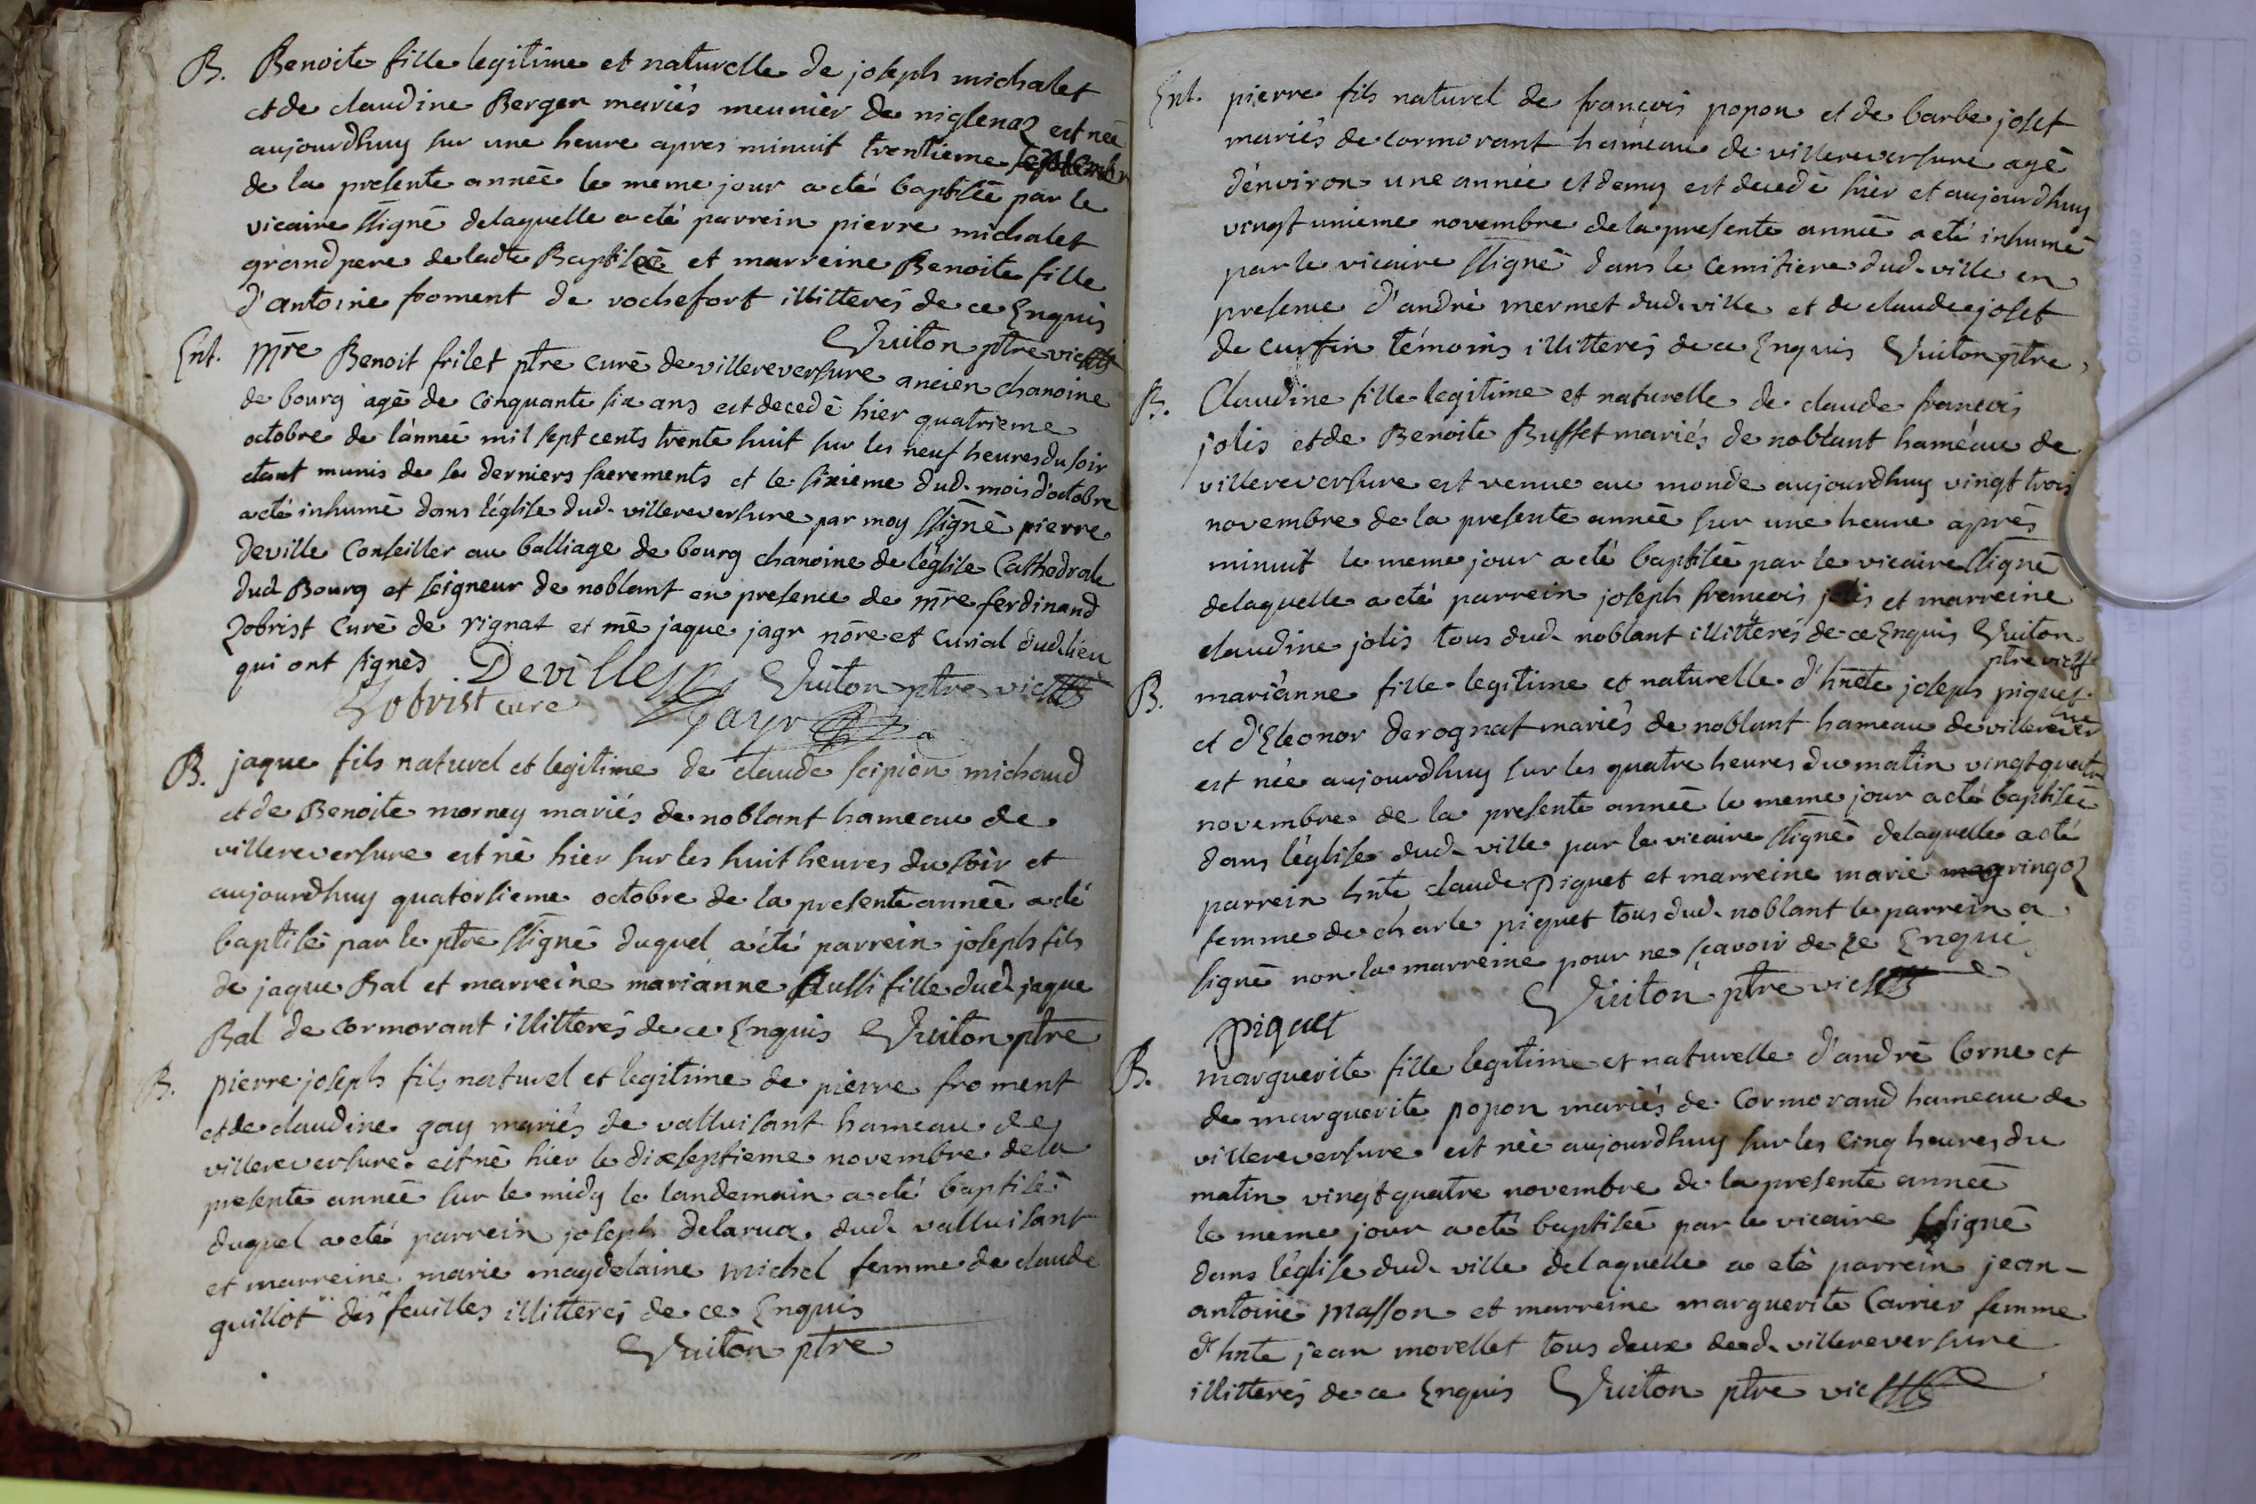 B. Benoite fille legitime et naturelle de joseph michalet
et de claudine Berger mariés meunier de niglenaz est neé
aujourdhuy sur une heure apres minuit trentieme septembr
de la presente année le meme jour a eté baptisée par le
vicaire ssigné delaquelle a eté parrein pierre michalet
grand pere de ladte Baptiseé et marreine Benoite fille
d'antoine froment de rochefort illiterés de ce Enquis
Vuiton ptre vic
Ent. Mre Benoit frilet ptre curé de villereversure ancien chanoine
de bourg agé de Cinquante six ans est decedé hier quatrieme
octobre de l'année mil sept cents trente huit sur les neuf heures du soir
etant munis de se derniers sacrements et le sixieme dud. mois d'octobre
a eté inhumé dans l'église dud. villereversure par moy ssigné pierre
Deville Conseiller au balliage de bourg chanoine de l'église Cathedrale
dud Bourg et seigneur de noblant en presence de mre ferdinand
Zobrist Curé de rignat et mé jaque jayr nõre et Curial dud. lieu
qui ont signés Deville Vuiton ptre vic
Zobrist cure Jayr
B. jaque fils naturel et legitime de claude scipion michaud
et de Benoite morney mariés de noblant hameau de
villereversure est né hier sur les huit heures du soir et
aujourdhuy quatorsieme octobre de la presente année a eté
baptisé par le ptre ssigné duquel a eté parrein joseph fils
de jaque Bal et marreine marianne Aussi fille dud. jaque
Bal de cormorant illitterés de ce Enquis Vuiton ptre
B. pierre joseph fils naturel et legitime de pierre froment
et de claudine gay mariés de valluisant hameau de
villereversure est né hier le dixseptieme novembre dela
presente année sur le midy le landemain a eté baptisé
duquel a eté parrein joseph delarua dud. valluisant
et marreine marie magdelaine michel femme de claude
guillot des feuilles illitterés de ce Enquis
Vuiton ptre
Ent. pierre fils naturel de françois popon et de barbe joset
mariés de cormorant hameau de villereversure agé
d'environ une année et demy est decedé hier et aujourdhuy
vingt unieme novembre dela presente année a eté inhumé
par le vicaire ssigné dans le cemitiere dud. ville en
presence d'andré mermet dud. ville et de claude joset
de curfin témoins illitterés de ce Enquis Vuiton ptre
B. Claudine fille legitime et naturelle de claude françois
jolis et de Benoite Buffet mariés de noblant haméau de
villereversure est venue au monde aujourdhuy vingt trois
novembre de la presente année sur une heure aprés
minuit le meme jour a eté baptisée par le vicaire ssigné
delaquelle a eté parrein joseph françois jolis et marreine
claudine jolis tous dud. noblant illitterés de ce Enquis Vuiton
ptre vic
B. marianne fille legitime et naturelle d'hnete joseph piquet
et d'Eleonor derognat mariés de noblant hameau de villerever
sure
est née aujourdhuy sur les quatre heures du matin vingt quatre
novembre de la presente année le meme jour a eté baptisée
dans l'église dud. ville par le vicaire ssigné delaquelle a eté
parrein hnte claude piquet et marreine marie magringoz
femme de charle piquet tous dud. noblant le parrein a
signé non la marreine pour ne sçavoir de ce Enqui
Vuiton ptre vic
piquet
B. marguerite fille legitime et naturelle d'andré Corne et
de marguerite popon mariés de Cormorand hameau de
villereversure est née aujourdhuy sur les cinq heures du
matin vingt quatre novembre de la presente année
le meme jour a eté baptisée par le vicaire ssigné
dans l'église dud. ville delaquelle a eté parrein jean-
antoine Masson et marreine marguerite Carrier femme
d'hnte jean morellet tous deux dud. villereversure
illitterés de ce Enquis Vuiton ptre vic